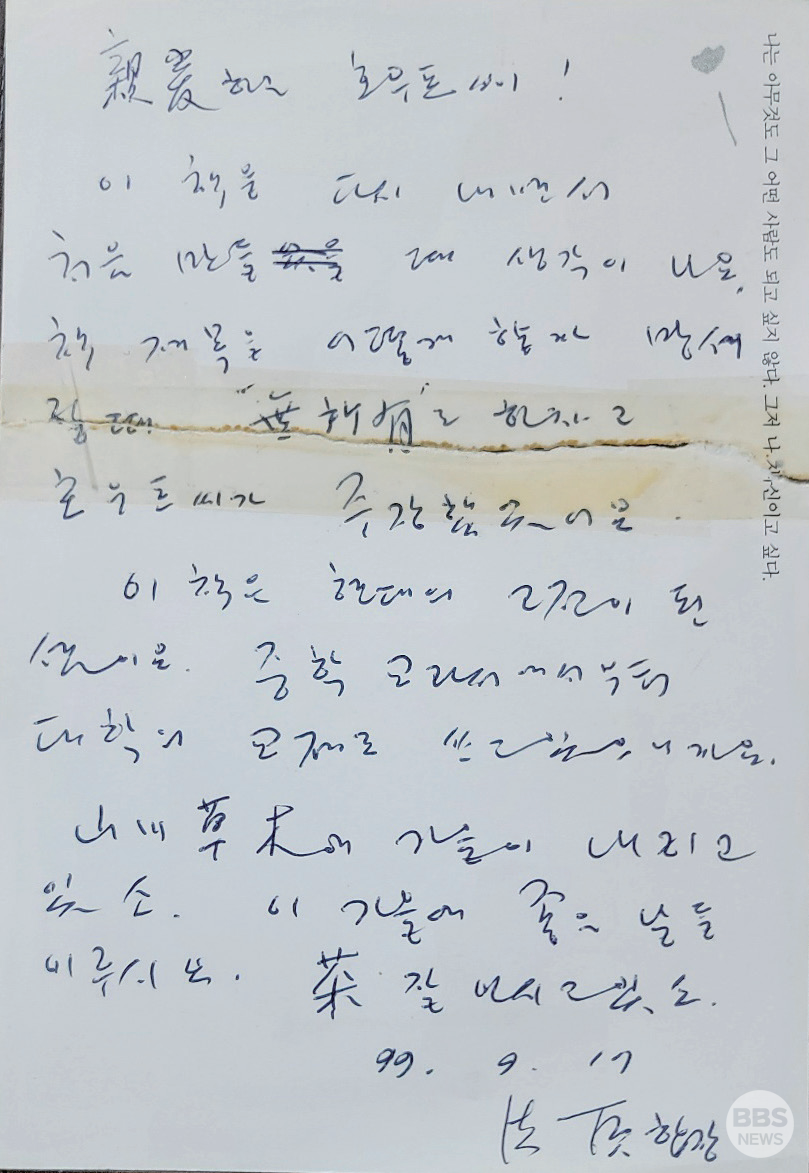 親愛하는 씨!
이 책을 다시 내면서
처음 만들 때 생각이 나오.
책 제목을 어떻게 할까 망서
릴 때 "無所有"로 하자고
씨가 주장했었지요.
이 책은 현대의 고전이 된
셈이오. 중학 교과서에서부터
대학의 교재로 쓰고 있으니까요.
草木에 가을이 내리고
있소. 이 가을에 좋은 날들
이루시오. 茶 잘 마시고 있소.
99. 9. 17
法頂 합장
나는 아무것도 그 어떤 사람도 되고 싶지 않다. 그저 나 자신이고 싶다.
BBS
NEWS